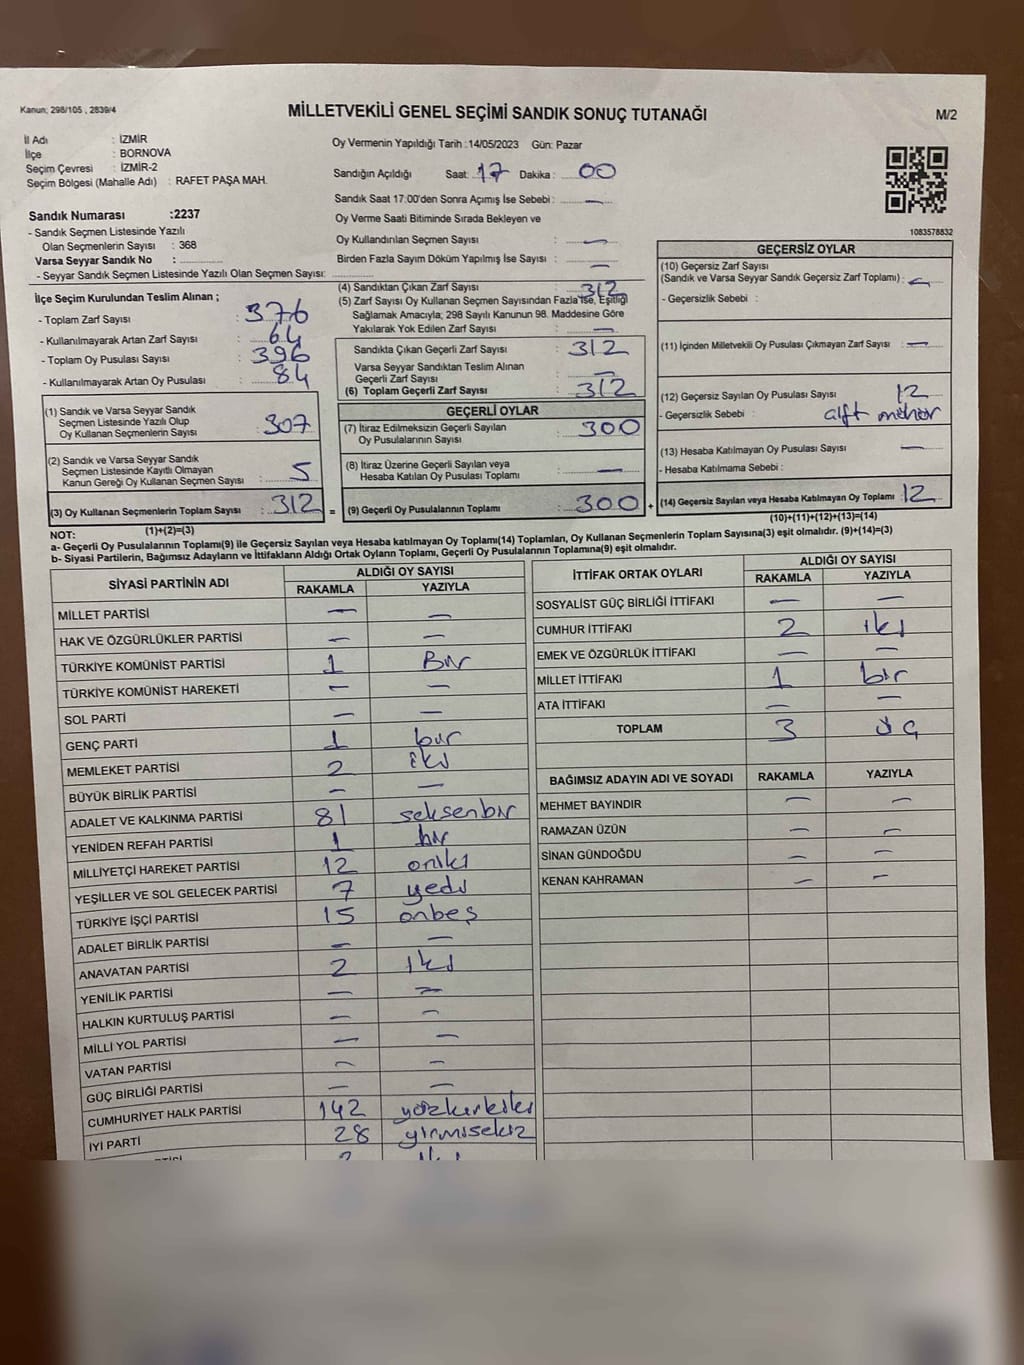 Kanun; 298/105 , 2839/4
MİLLETVEKİLİ GENEL SEÇİMİ SANDIK SONUÇ TUTANAĞI
M/2
İl Adı : İZMİR
İlçe : BORNOVA
Seçim Çevresi : İZMİR-2
Seçim Bölgesi (Mahalle Adı) : RAFET PAŞA MAH.
Sandık Numarası :2237
- Sandık Seçmen Listesinde Yazılı
Olan Seçmenlerin Sayısı : 368
Varsa Seyyar Sandık No :
- Seyyar Sandık Seçmen Listesinde Yazılı Olan Seçmen Sayısı:
Oy Vermenin Yapıldığı Tarih :14/05/2023 Gün: Pazar
Sandığın Açıldığı Saat: 17 Dakika : 00
Sandık Saat 17:00'den Sonra Açımış İse Sebebi : —
Oy Verme Saati Bitiminde Sırada Bekleyen ve
Oy Kullandırılan Seçmen Sayısı : —
Birden Fazla Sayım Döküm Yapılmış İse Sayısı : —
1083578832
İlçe Seçim Kurulundan Teslim Alınan ;
- Toplam Zarf Sayısı : 376
- Kullanılmayarak Artan Zarf Sayısı : 64
- Toplam Oy Pusulası Sayısı : 396
- Kullanılmayarak Artan Oy Pusulası : 84
(1) Sandık ve Varsa Seyyar Sandık
Seçmen Listesinde Yazılı Olup
Oy Kullanan Seçmenlerin Sayısı : 307
(2) Sandık ve Varsa Seyyar Sandık
Seçmen Listesinde Kayıtlı Olmayan
Kanun Gereği Oy Kullanan Seçmen Sayısı : 5
(3) Oy Kullanan Seçmenlerin Toplam Sayısı : 312 =
(1)+(2)=(3)
(4) Sandıktan Çıkan Zarf Sayısı : 312
(5) Zarf Sayısı Oy Kullanan Seçmen Sayısından Fazla İse, Eşitliği
Sağlamak Amacıyla; 298 Sayılı Kanunun 98. Maddesine Göre
Yakılarak Yok Edilen Zarf Sayısı : —
Sandıkta Çıkan Geçerli Zarf Sayısı : 312
Varsa Seyyar Sandıktan Teslim Alınan
Geçerli Zarf Sayısı : —
(6) Toplam Geçerli Zarf Sayısı : 312
GEÇERLİ OYLAR
(7) İtiraz Edilmeksizin Geçerli Sayılan
Oy Pusulalarının Sayısı : 300
(8) İtiraz Üzerine Geçerli Sayılan veya
Hesaba Katılan Oy Pusulası Toplamı : —
(9) Geçerli Oy Pusulalarının Toplamı : 300 +
GEÇERSİZ OYLAR
(10) Geçersiz Zarf Sayısı
(Sandık ve Varsa Seyyar Sandık Geçersiz Zarf Toplamı) : —
- Geçersizlik Sebebi :
(11) İçinden Milletvekili Oy Pusulası Çıkmayan Zarf Sayısı : —
(12) Geçersiz Sayılan Oy Pusulası Sayısı : 12
- Geçersizlik Sebebi : mühür
(13) Hesaba Katılmayan Oy Pusulası Sayısı : —
- Hesaba Katılmama Sebebi :
(14) Geçersiz Sayılan veya Hesaba Katılmayan Oy Toplamı : 12
(10)+(11)+(12)+(13)=(14)
NOT:
a- Geçerli Oy Pusulalarının Toplamı(9) ile Geçersiz Sayılan veya Hesaba katılmayan Oy Toplamı(14) Toplamları, Oy Kullanan Seçmenlerin Toplam Sayısına(3) eşit olmalıdır. (9)+(14)=(3)
b- Siyasi Partilerin, Bağımsız Adayların ve İttifakların Aldığı Ortak Oyların Toplamı, Geçerli Oy Pusulalarının Toplamına(9) eşit olmalıdır.
SİYASİ PARTİNİN ADI ALDIĞI OY SAYISI
RAKAMLA YAZIYLA
MİLLET PARTİSİ — —
HAK VE ÖZGÜRLÜKLER PARTİSİ — —
TÜRKİYE KOMÜNİST PARTİSİ 1 Bir
TÜRKİYE KOMÜNİST HAREKETİ — —
SOL PARTİ — —
GENÇ PARTİ 1 bir
MEMLEKET PARTİSİ 2 iki
BÜYÜK BİRLİK PARTİSİ — —
ADALET VE KALKINMA PARTİSİ 81 seksenbir
YENİDEN REFAH PARTİSİ 1 bir
MİLLİYETÇİ HAREKET PARTİSİ 12 oniki
YEŞİLLER VE SOL GELECEK PARTİSİ 7 yedi
TÜRKİYE İŞÇİ PARTİSİ 15 onbeş
ADALET BİRLİK PARTİSİ — —
ANAVATAN PARTİSİ 2 iki
YENİLİK PARTİSİ — —
HALKIN KURTULUŞ PARTİSİ — —
MİLLİ YOL PARTİSİ — —
VATAN PARTİSİ — —
GÜÇ BİRLİĞİ PARTİSİ — —
CUMHURİYET HALK PARTİSİ 142 yüzkırkiki
İYİ PARTİ 28 yirmisekiz
İTTİFAK ORTAK OYLARI ALDIĞI OY SAYISI
RAKAMLA YAZIYLA
SOSYALİST GÜÇ BİRLİĞİ İTTİFAKI — —
CUMHUR İTTİFAKI 2 iki
EMEK VE ÖZGÜRLÜK İTTİFAKI — —
MİLLET İTTİFAKI 1 bir
ATA İTTİFAKI — —
TOPLAM 3 üç
BAĞIMSIZ ADAYIN ADI VE SOYADI RAKAMLA YAZIYLA
MEHMET BAYINDIR — —
RAMAZAN ÜZÜN — —
SİNAN GÜNDOĞDU — —
KENAN KAHRAMAN — —